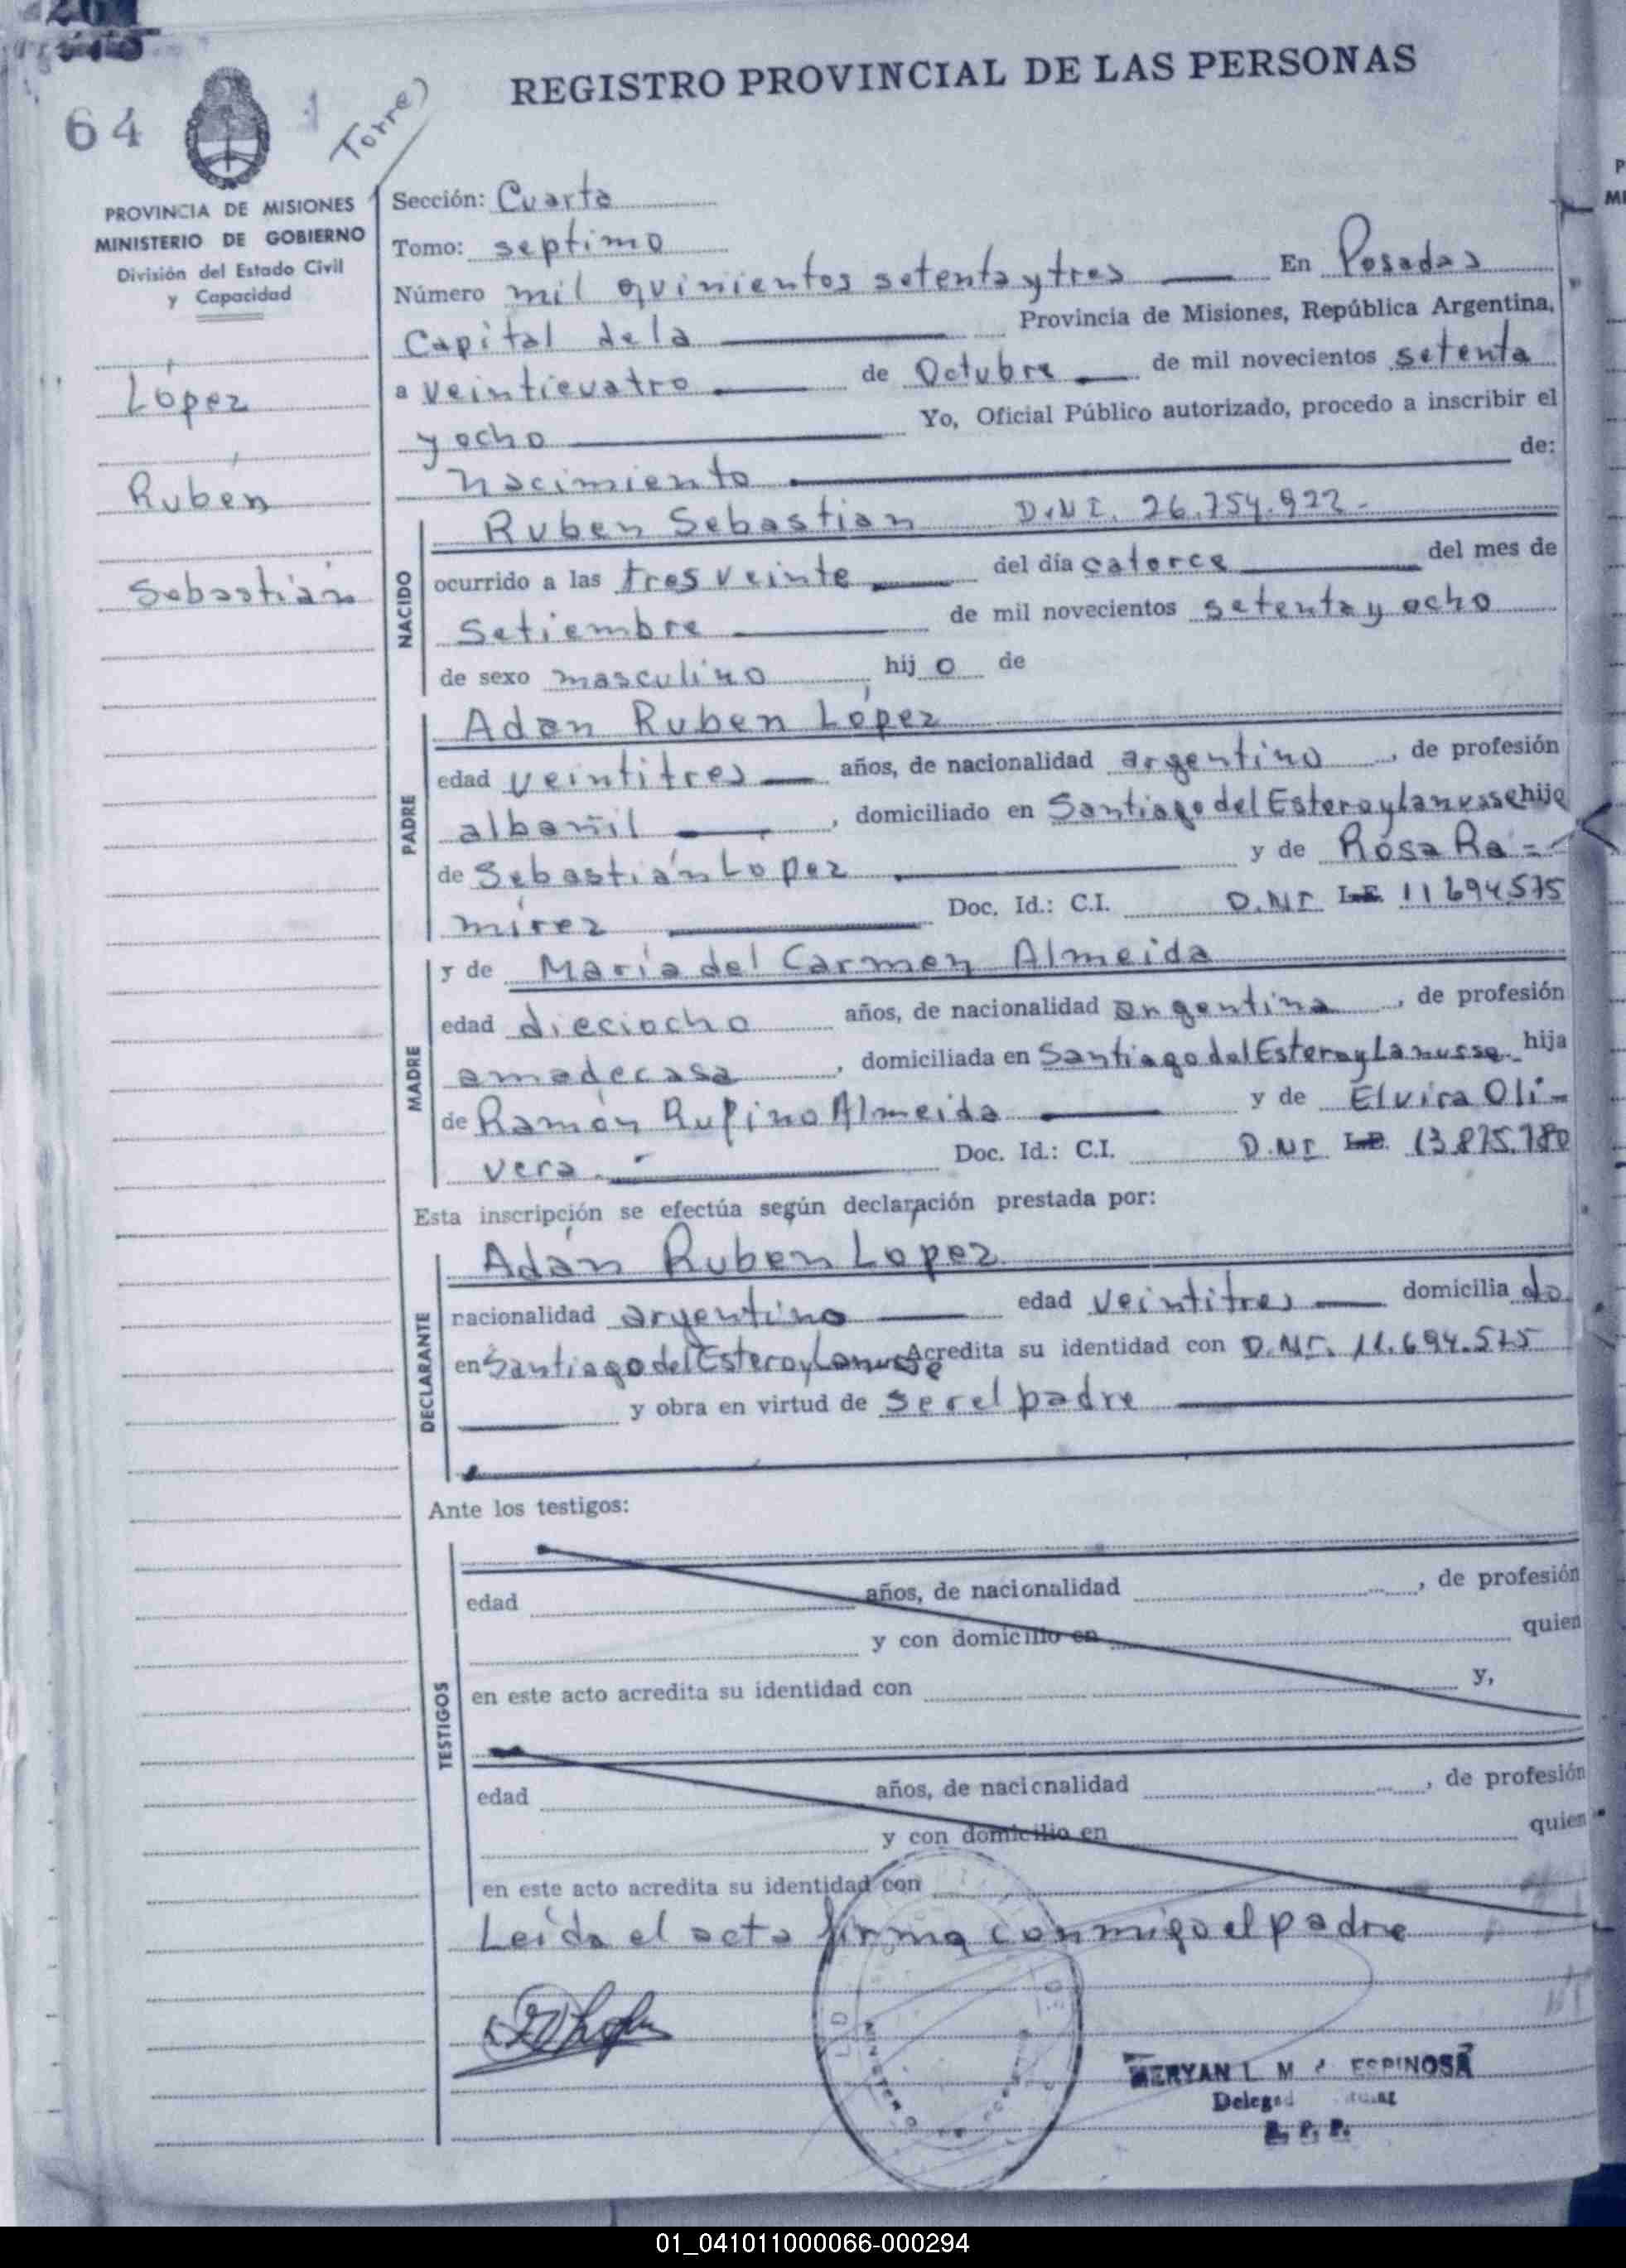 64
Torres
REGISTRO PROVINCIAL DE LAS PERSONAS
PROVINCIA DE MISIONES
MINISTERIO DE GOBIERNO
División del Estado Civil
y Capacidad
López
Rubén
Sebastián
Sección: Cuarta
Tomo: septimo
Número mil quinientos setenta y tres En Posadas
Capital de la Provincia de Misiones, República Argentina,
a veinticuatro de Octubre de mil novecientos setenta
y ocho Yo, Oficial Público autorizado, procedo a inscribir el
nacimiento de:
NACIDO
Ruben Sebastian D.N.I. 26.754.922.-
ocurrido a las tres veinte del día catorce del mes de
Setiembre de mil novecientos setenta y ocho
de sexo masculino hij o de
PADRE
Adan Ruben López
edad veintitres años, de nacionalidad argentino, de profesión
albañil, domiciliado en Santiago del Estero y Lanusse hijo
de Sebastián López y de Rosa Ra=
mírez Doc. Id.: C.I. D.NI L.E. 11694575
MADRE
y de María del Carmen Almeida
edad dieciocho años, de nacionalidad argentina, de profesión
ama de casa, domiciliada en Santiago del Estero y Lanusse hija
de Ramón Rufino Almeida y de Elvira Oli=
vera. Doc. Id.: C.I. D.NI L.E. 13.875.780
Esta inscripción se efectúa según declaración prestada por:
DECLARANTE
Adán Ruben Lopez
nacionalidad argentino edad veintitres domicilia do
en Santiago del Estero y Lanusse Acredita su identidad con D.NI. 11.694.575
y obra en virtud de ser el padre
Ante los testigos:
TESTIGOS
edad años, de nacionalidad , de profesión
y con domicilio en quien
en este acto acredita su identidad con y,
edad años, de nacionalidad , de profesión
y con domicilio en quien
en este acto acredita su identidad con
Leída el acta firma conmigo el padre
MERYAN L. M ESPINOSA
R. P. P.
01_041011000066-000294